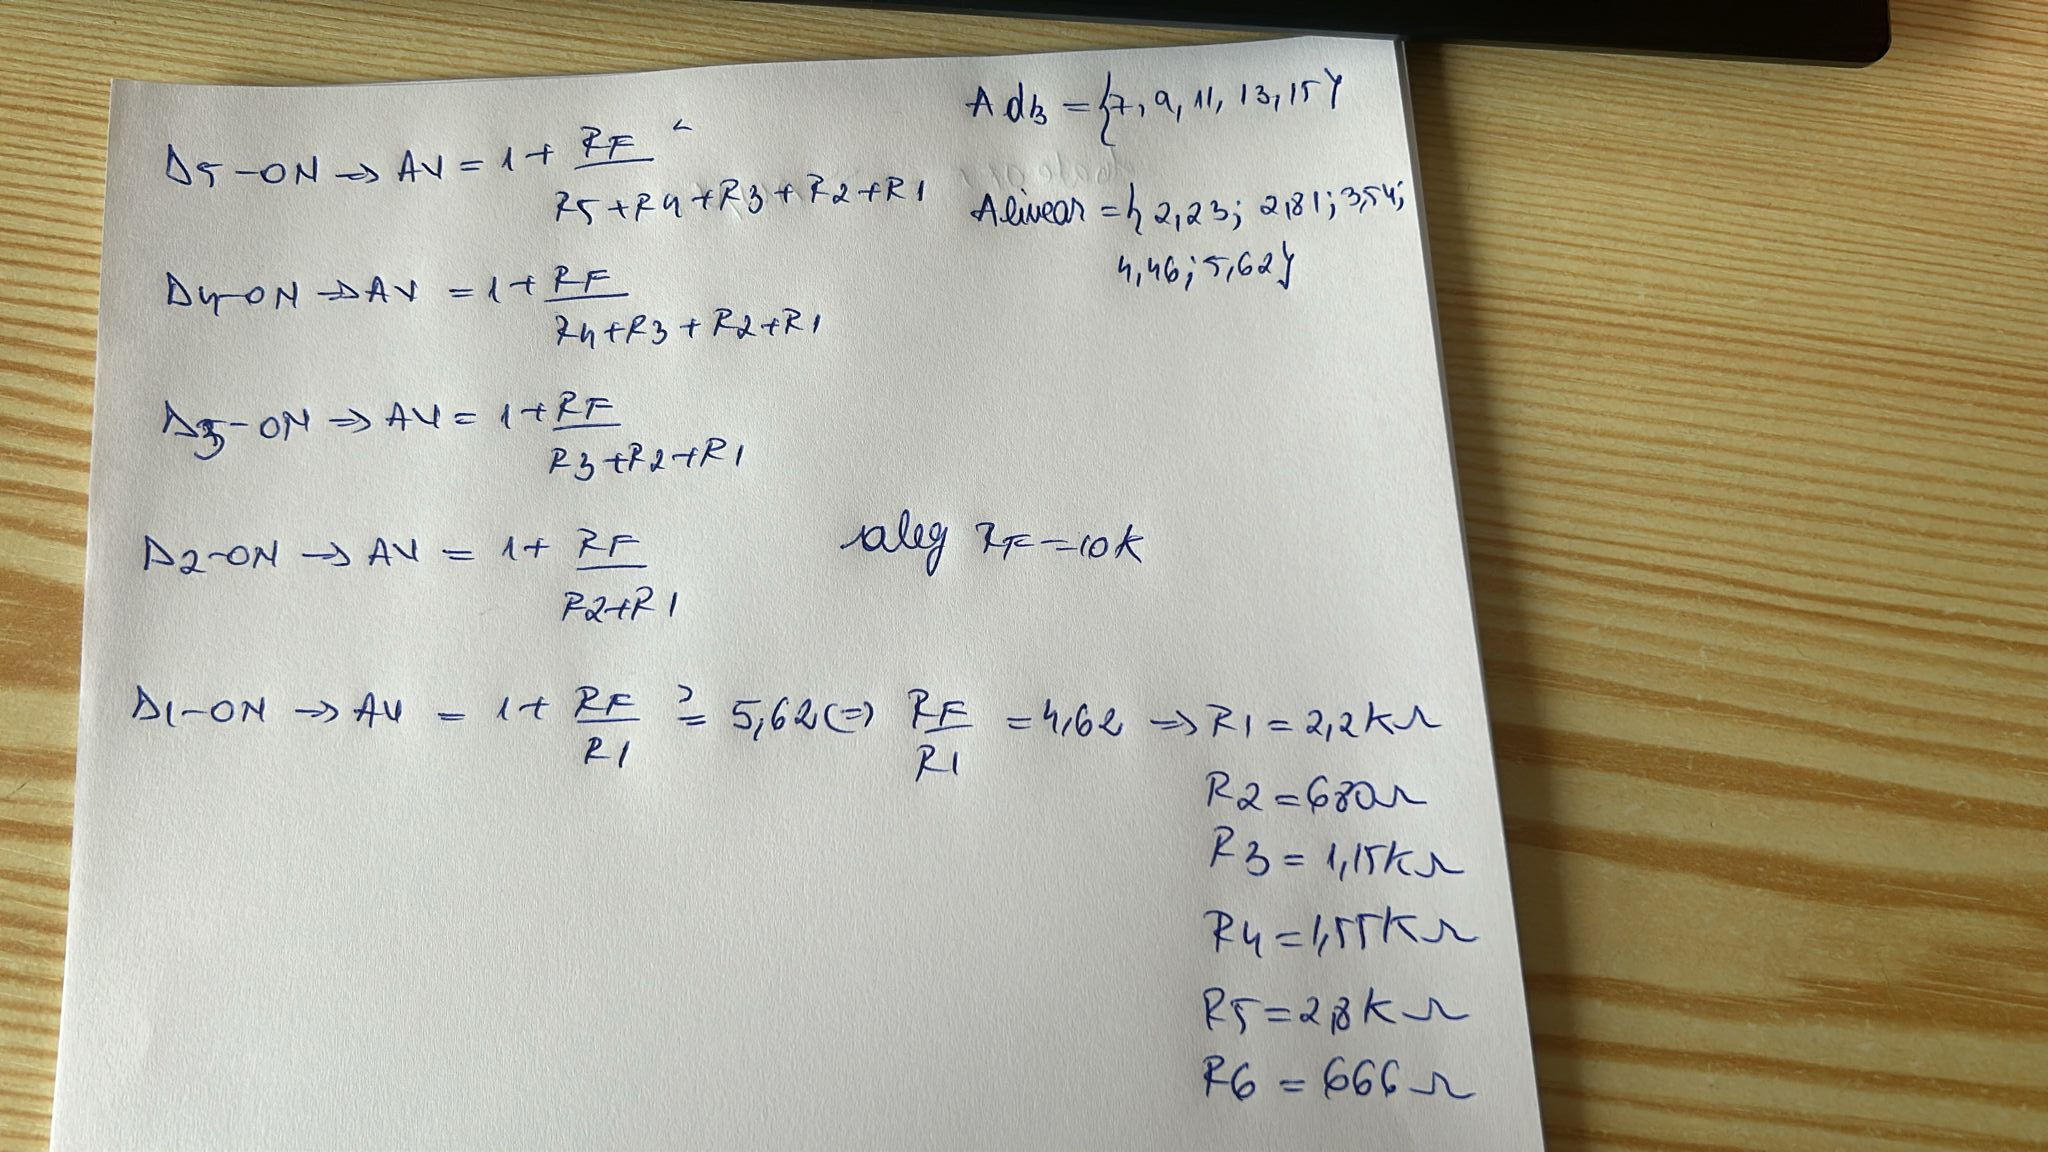 AdB = {7, 9, 11, 13, 15}
D5-ON => AV = 1 + RF / R5+R4+R3+R2+R1
Alinear = { 2,23; 2,81; 3,54;
4,46; 5,62}
D4-ON => AV = 1+ RF / R4+R3+R2+R1
D3-ON => AV = 1+ RF / R3+R2+R1
D2-ON => AV = 1+ RF / R2+R1
aleg RF=10k
D1-ON => AV = 1+ RF / R1 ?= 5,62 (=) RF / R1 = 4,62 => R1 = 2,2KΩ
R2 = 680Ω
R3 = 1,15KΩ
R4 = 1,55KΩ
R5 = 2,8KΩ
R6 = 666Ω